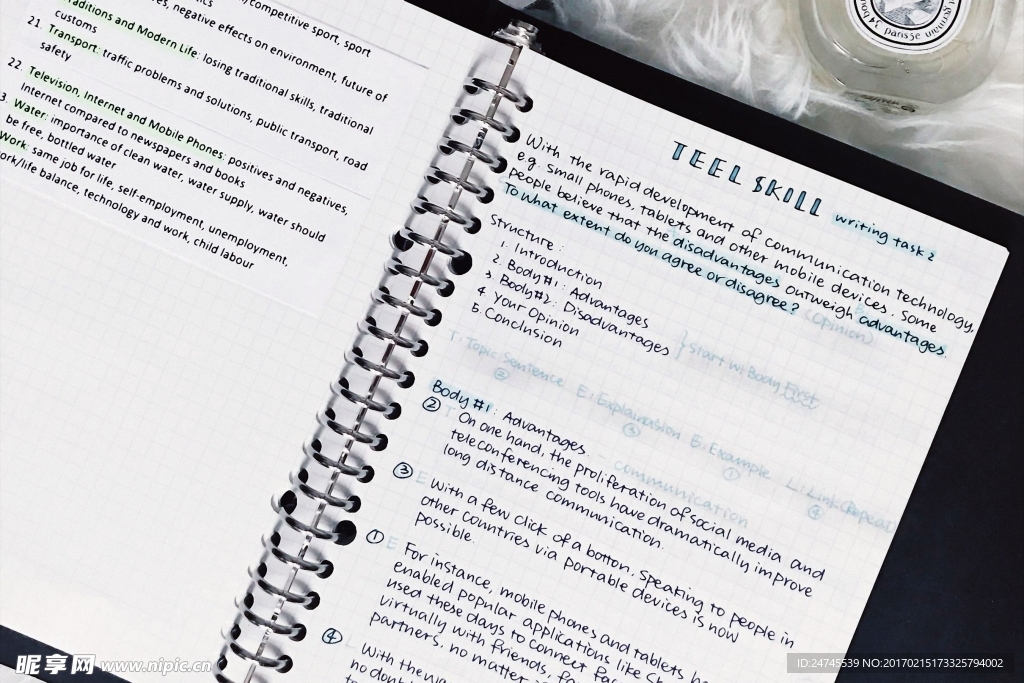 /competitive sport, sport
es, negative effects on environment, future of
Traditions and Modern Life: losing traditional skills, traditional
customs
21. Transport: traffic problems and solutions, public transport, road
safety
22. Television, Internet and Mobile Phones: positives and negatives,
Internet compared to newspapers and books
3. Water: importance of clean water, water supply, water should
be free, bottled water
Work: same job for life, self-employment, unemployment,
ork/life balance, technology and work, child labour
TEEL SKILL writing task 2
With the rapid development of communication technology,
e.g. small phones, tablets and other mobile devices. Some
people believe that the disadvantages outweigh advantages.
To what extent do you agree or disagree? (Opinion)
Structure:
1. Introduction
2. Body#1: Advantages
3. Body#2: Disadvantages
4. Your Opinion
5. Conclusion
} Start w/ Body First
T: Topic Sentence E: Explanation E: Example L: Link (Repeat
② ③ ① ④
Body #1: Advantages
② T On one hand, the proliferation of social media and
teleconferencing tools have dramatically improve
long distance communication.
communication
③ E With a few click of a botton, speaking to people in
other countries via portable devices is now
possible.
① E For instance, mobile phones and tablets
enabled popular applications like
used these days to connect
virtually with friends,
partners, no matter
④ L With the
no doubt
paris 34
昵享网 www.nipic.cn
ID:24745539 NO:20170215173325794002